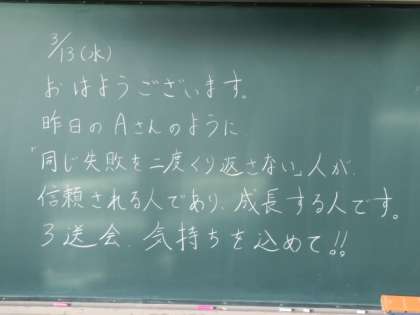 3/13(水)
おはようございます。
昨日のAさんのように
「同じ失敗を二度くり返さない」人が、
信頼される人であり、成長する人です。
3送会、気持ちを込めて!!